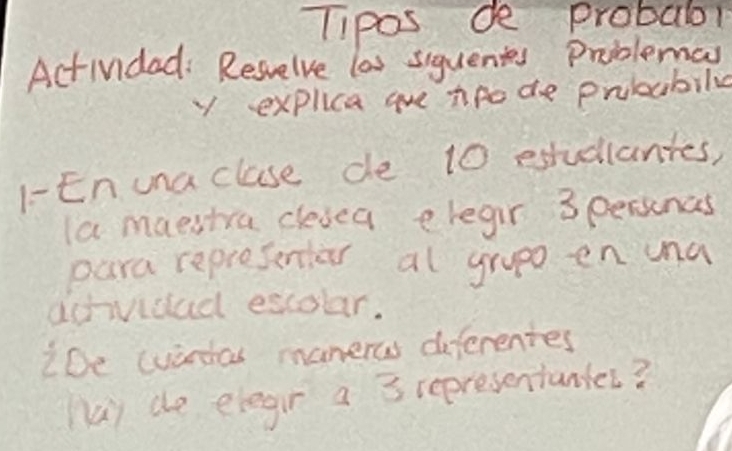 Tipos de probabi
Actividad: Resuelve los siguientes problemas
y explica que tipo de probabilid
1.- En una clase de 10 estudiantes,
la maestra desea elegir 3 personas
para representar al grupo en una
actividad escolar.
¿De cuántas maneras diferentes
Hay de elegir a 3 representantes?